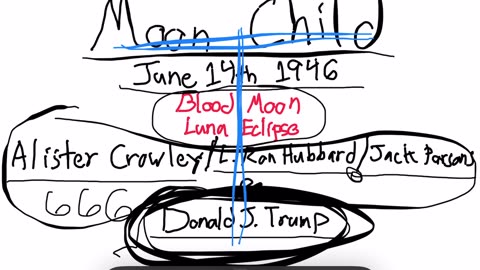 Moon Child
June 14th 1946
Blood Moon
Luna Eclipse
Alister Crowley/L. Ron Hubbard/Jack Parsons
666
Donald J. Trump